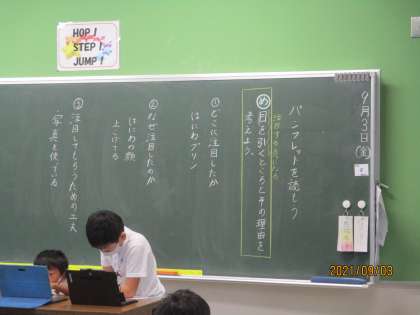 HOP!
STEP!
JUMP!
9月3日(金)
パンフレットを読もう
め 目を引くところとその理由を
考えよう。
①どこに注目したか
はにわプリン
②なぜ注目したのか
はにわの顔
③注目してもらうための工夫
写真を使っている
2021/09/03